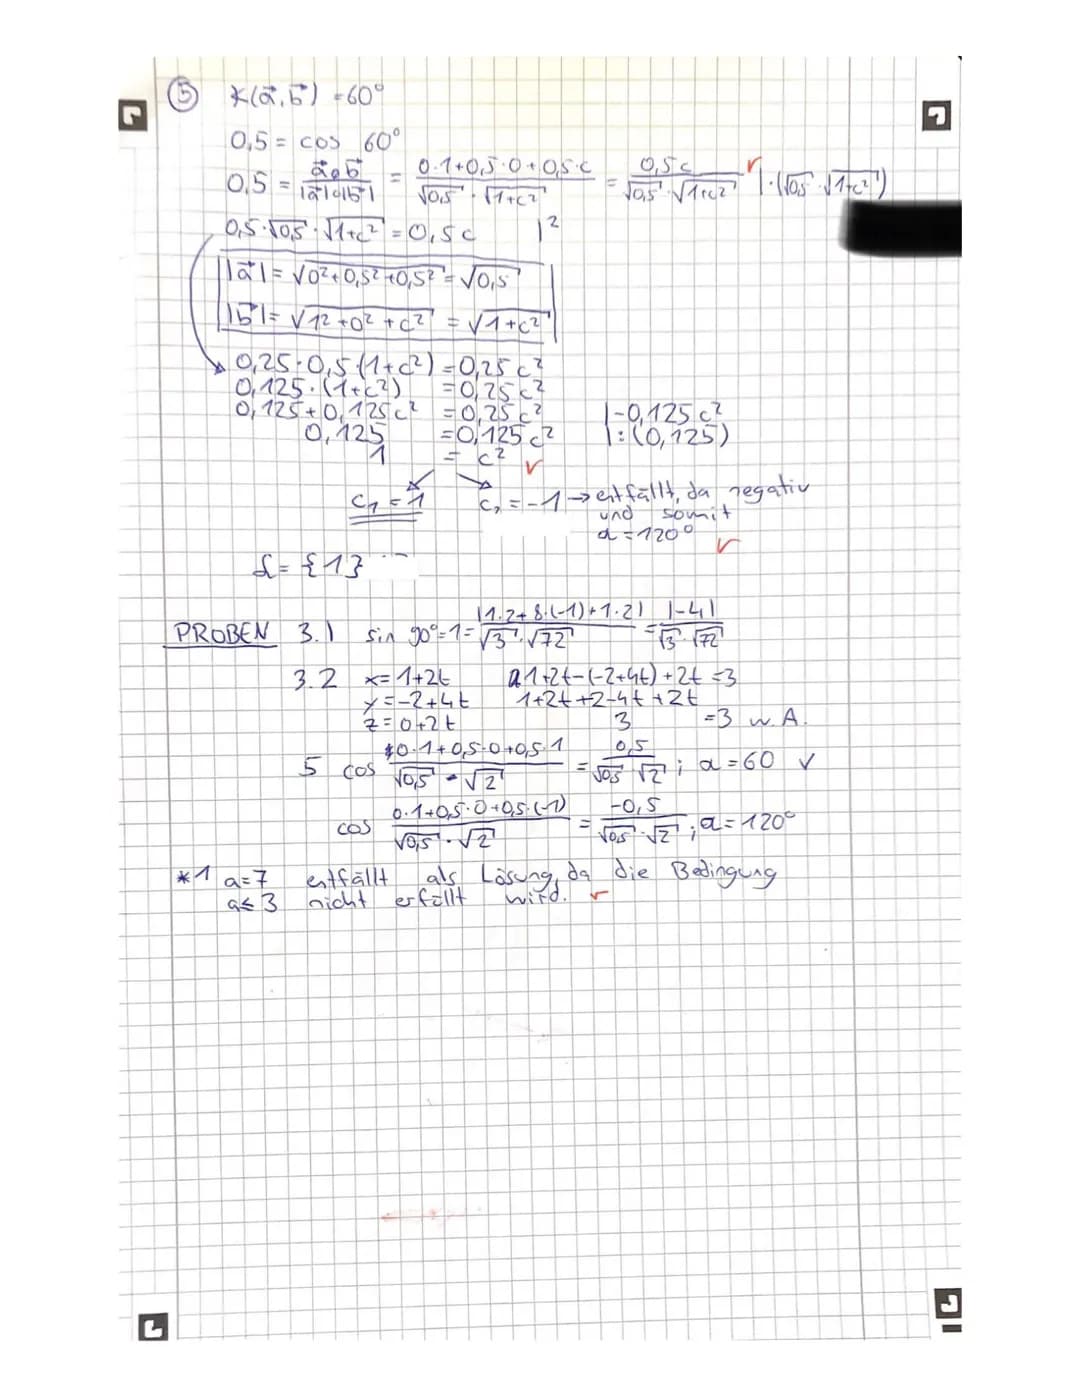 ⑤ ∢(a⃗,b⃗) = 60°
0,5 = cos 60°
0,5 = (a⃗∘b⃗)/(|a⃗|∘|b⃗|) = (0·1+0,5·0+0,5·c)/(√0,5 · √1+c²) = 0,5c/(√0,5 · √1+c²) |·(√0,5 · √1+c²)
0,5·√0,5 · √1+c² = 0,5c |²
|a⃗| = √0²+0,5²+0,5² = √0,5
|b⃗| = √1²+0²+c² = √1+c²
0,25·0,5·(1+c²) = 0,25c²
0,125·(1+c²) = 0,25c²
0,125+0,125c² = 0,25c² |-0,125c²
0,125 = 0,125c² |:(0,125)
1 = c²
c₁ = 1 c₂ = -1 → entfällt, da negativ
und somit
α = 120°
L = {1}
PROBEN 3.1 sin 90° = 1 = |1·2+8·(-1)+1·2|/(√3 · √72) = |-4|/(√3 · √72)
3.2 x = 1+2t 1+2t-(-2+4t)+2t = 3
y = -2+4t 1+2t+2-4t+2t
z = 0+2t 3 = 3 w.A.
5 cos (0·1+0,5·0+0,5·1)/(√0,5 · √2) = 0,5/(√0,5 · √2) ; α = 60 ✓
cos (0·1+0,5·0+0,5·(-1))/(√0,5 · √2) = -0,5/(√0,5 · √2) ; α = 120°
*1 a=7 entfällt als Lösung, da die Bedingung
a≤3 nicht erfüllt wird.